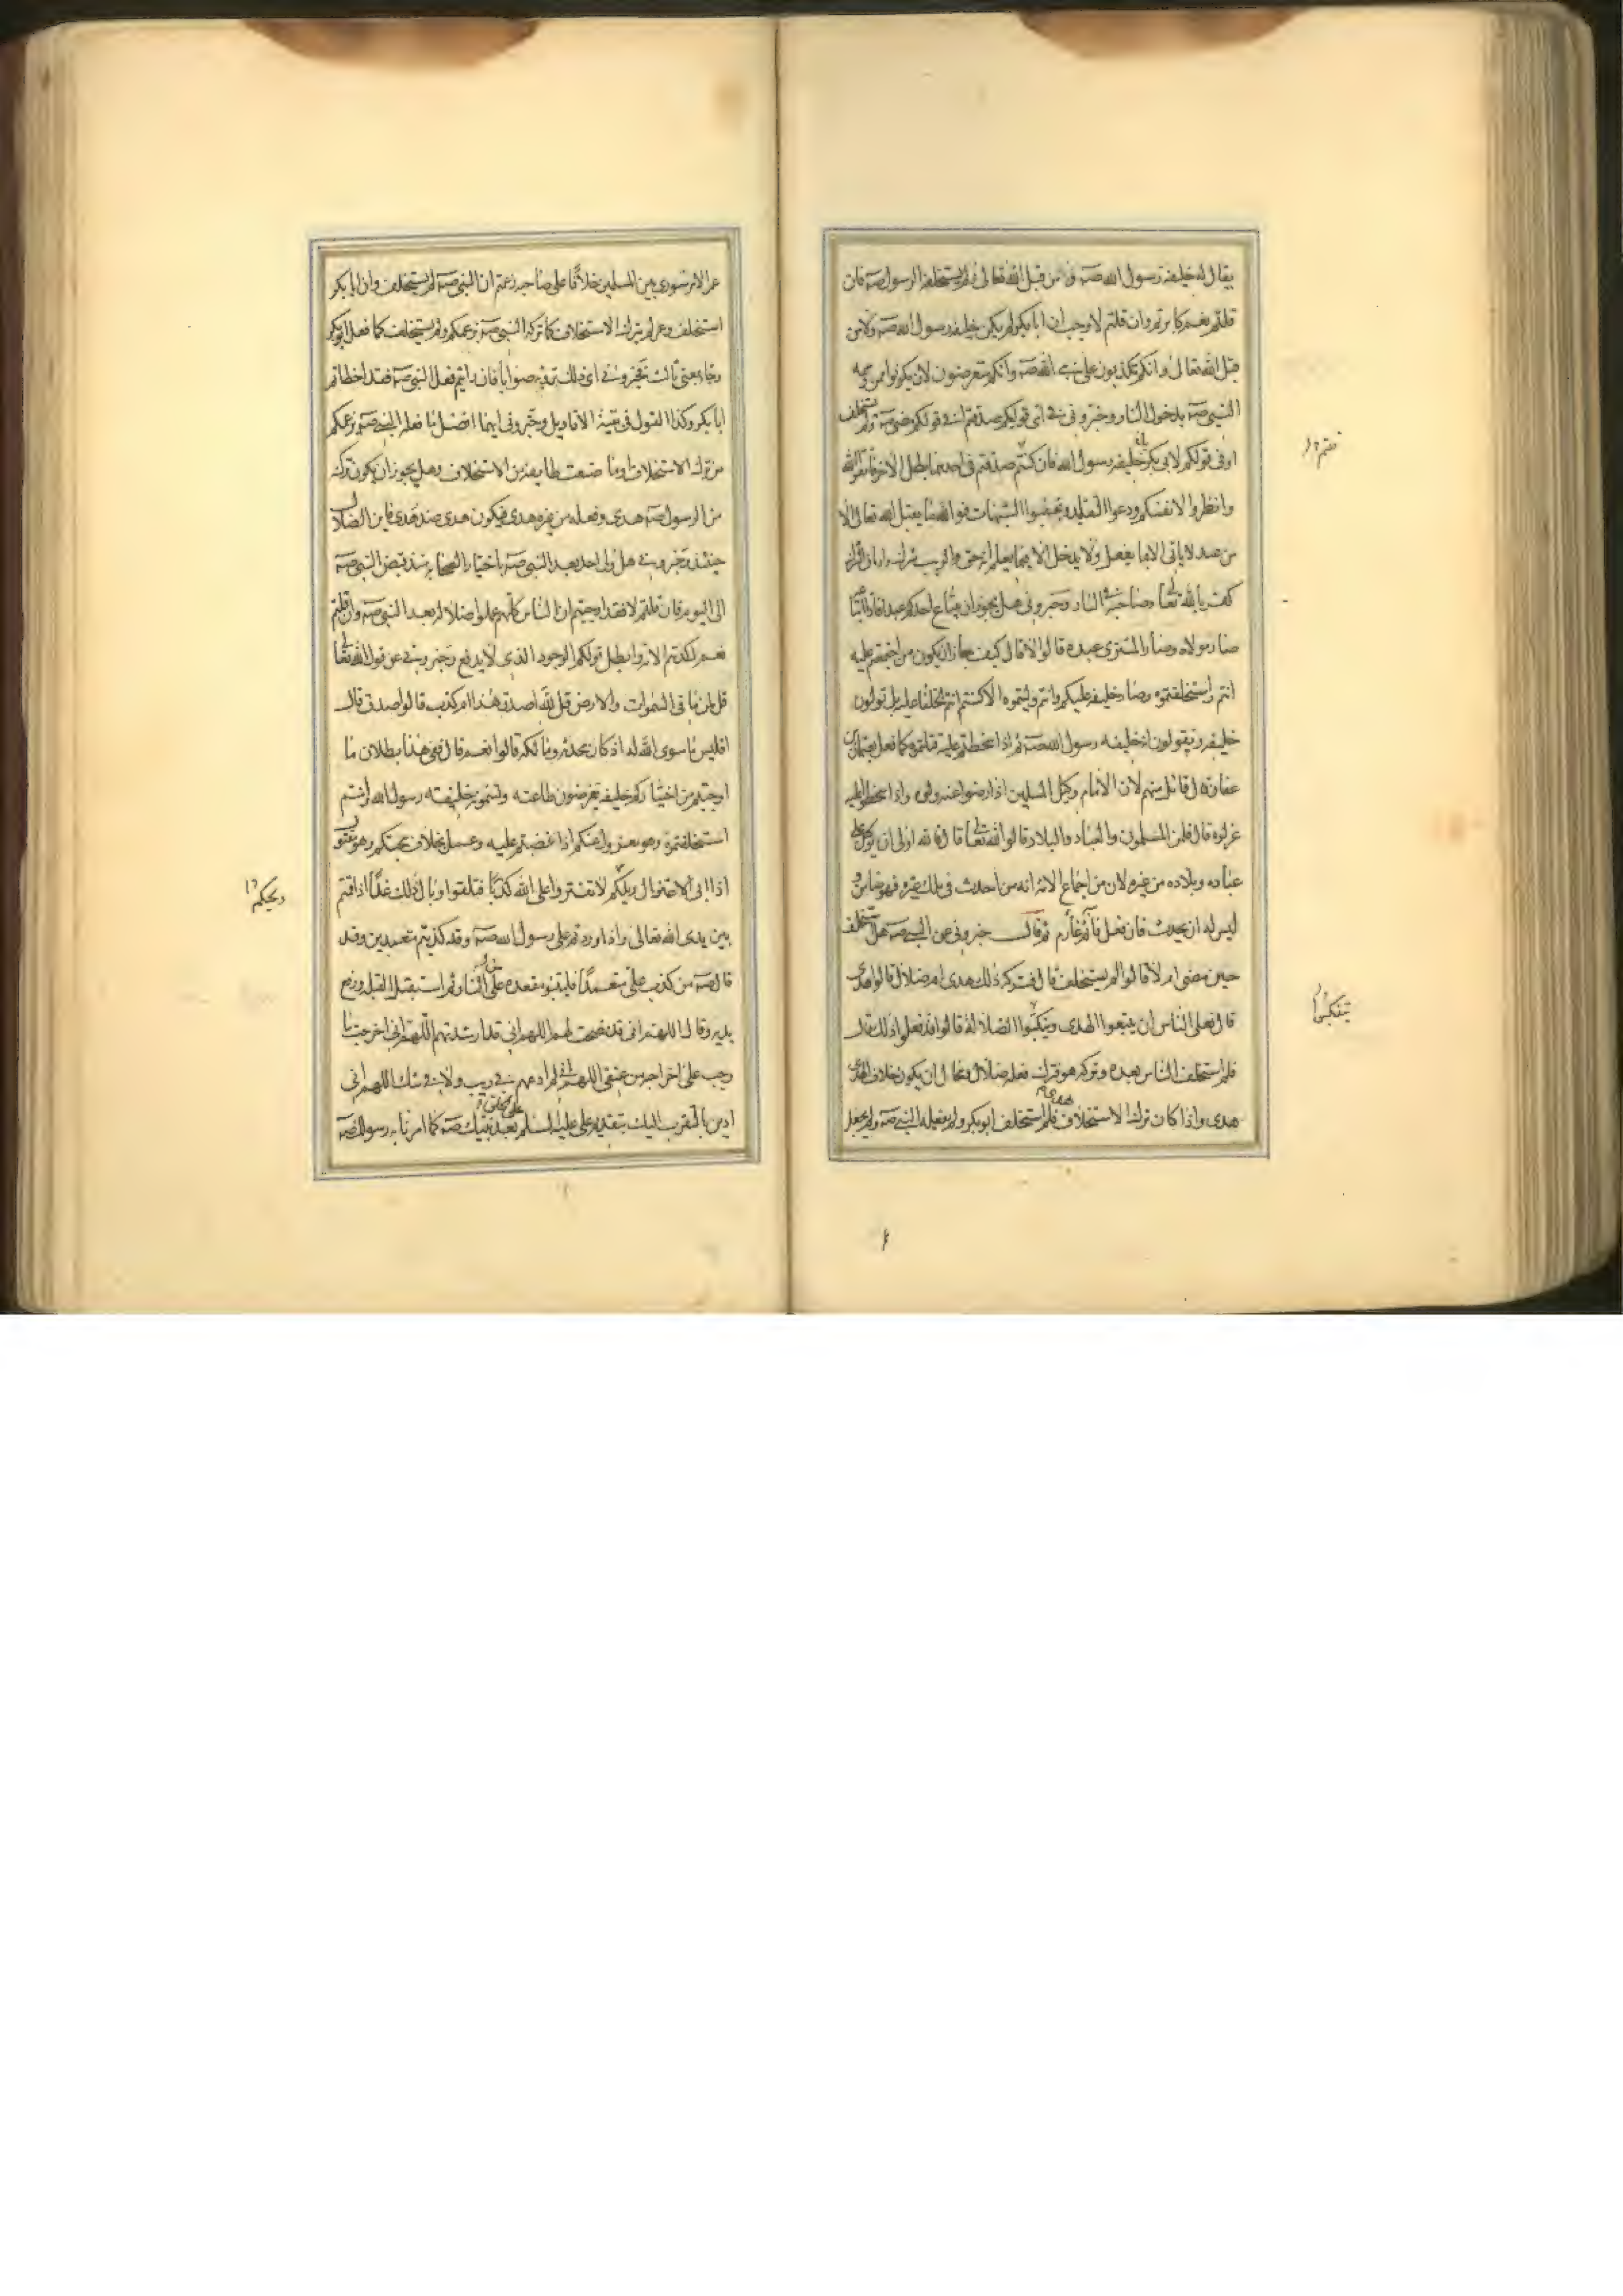 يقال له خليفة رسول الله صه ولا من قبل الله تعالى ولم يستخلفه الرسول صه فان
قلتم نعم كابرتم وان قلتم لا وجب ان ابا بكر لم يكن خليفة رسول الله صه ولا من
قبل الله تعالى وانكم تكذبون على نبي الله صه وانكم متعرضون لان تكونوا ممن وسمه
النبي صه بدخول النار وخبروني في اي قوليكم صدقتم افي قولكم مضى صه ولم يستخلف
او في قولكم لابي بكر يا خليفة رسول الله فان كنتم صدقتم في احدهما بطل الاخر فاتقوا الله
وانظروا لانفسكم ودعوا التقليد وتجنبوا الشبهات فوالله ما يقبل الله تعالى الا
من عبد لا ياتي الا بما يعقل ولا يدخل الا فيما يعلم انه حق والريب شك وادمان الشك
كفر بالله تعالى وصاحبه في النار وخبروني هل يجوز ان يبتاع احدكم عبدا فاذا ابتاعه
صار مولاه وصار المشتري عبده قالوا لا قال كيف جاز ان يكون من اجتمعتم عليه
انتم واستخلفتموه وصار خليفة عليكم وانتم وليتموه الا كنتم انتم الخلفا عليه بل تولون
خليفة وتقولون انه خليفة رسول الله صه ثم اذا سخطتم عليه قتلتموه كما فعل بعثمان بن
عفان قال قائل منهم لان الامام وكيل المسلمين اذا رضوا عنه ولوه واذا سخطوا عليه
عزلوه قال فلمن المسلمون والعباد والبلاد قالوا لله تعالى قال فالله اولى ان يوكل على
عباده وبلاده من غيره لان من اجماع الامة انه من احدث في ملك غيره فهو ضامن و
ليس له ان يحدث فان فعل فآثم غارم ثم قال خبروني عن النبي صه هل استخلف
حين مضى ام لا قالوا لم يستخلف قال فتركه ذلك هدى ام ضلال قالوا هدى
قال فعلى الناس ان يتبعوا الهدى ويتنكبوا الضلالة قالوا قد فعلوا ذلك قال
فلم استخلف الناس بعده وتركه هو فترك فعله ضلال ومحال ان يكون خلاف الهدى
هدى واذا كان ترك الاستخلاف هدى فلم استخلف ابو بكر ولم يفعله النبي صه ولم جعل
عمر الامر شورى بين المسلمين خلافا على صاحبه زعمتم ان النبي صه لم يستخلف وان ابا بكر
استخلف وعمر لم يترك الاستخلاف كما تركه النبي صه بزعمكم ولم يستخلف كما فعل ابو بكر
وجاء بمعنى ثالث فخبروني اي ذلك ترونه صوابا فان رايتم فعل النبي صه فقد اخطاتم
ابا بكر وكذا القول في بقية الاقاويل وخبروني ايهما افضل ما فعله النبي صه بزعمكم
من ترك الاستخلاف او ما صنعت طايفة من الاستخلاف وهل يجوز ان يكون تركه
من الرسول صه هدى وفعله من غيره هدى فيكون هدى ضد هدى فاين الضلال
حينئذ وخبروني هل ولي احد بعد النبي صه باختيار الصحابة منذ قبض النبي صه
الى اليوم فان قلتم لا فقد اوجبتم ان الناس كلهم عملوا ضلالا بعد النبي صه وان قلتم
نعم كذبتم الامة وابطل قولكم الوجود الذي لا يدفع وخبروني عن قول الله تعالى
قل لمن ما في السموات والارض قل لله اصدق هذا ام كذب قالوا صدق قال
افليس ما سوى الله لله اذ كان محدثه ومالكه قالوا نعم قال ففي هذا بطلان ما
اوجبتم من اختياركم خليفة تفترضون طاعته وتسمونه خليفة رسول الله وانتم
استخلفتموه وهو معزول عنكم اذا غضبتم عليه وعمل بخلاف محبتكم وهو مقتول
اذا ابى الاعتزال ويلكم لا تفتروا على الله كذبا فتلقوا وبال ذلك غدا اذا قمتم
بين يدي الله تعالى واذا وردتم على رسول الله صه وقد كذبتم متعمدين وقد
قال صه من كذب علي متعمدا فليتبوء مقعده من النار ثم استقبل القبلة ورفع
يديه وقال اللهم اني قد نصحت لهم اللهم اني قد ارشدتهم اللهم اني اخرجت ما
وجب علي اخراجه من عنقي اللهم اني لم ادعهم في ريب ولا في شك اللهم اني
ادين بالتقرب اليك بتقديم علي عليه السلم على الخلق بعد نبيك صه كما امرنا به رسولك صه
ويحكم